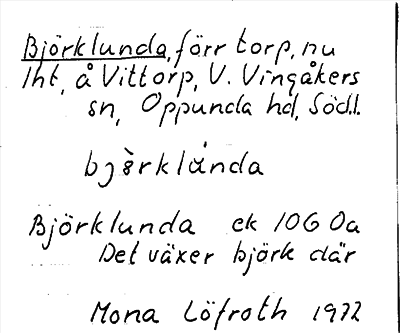 Björklunda, förr torp, nu
lht, å Vittorp, V. Vingåkers
sn, Oppunda hd, Södl.
Björklunda ek 10G 0a
Det växer björk där
Mona Löfroth 1972